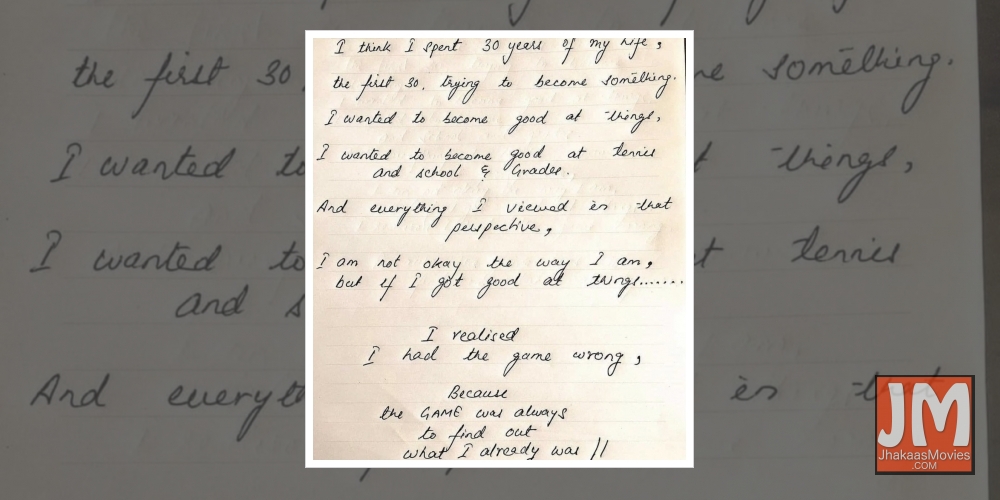 I think I spent 30 years of my life,
the first 30, trying to become something.
I wanted to become good at things,
I wanted to become good at tennis
and school & Grades.
And everything I viewed in that
perspective,
I am not okay the way I am,
but if I got good at things.......
I realised
I had the game wrong,
Because
the GAME was always
to find out
what I already was //
JM
JhakaasMovies
.COM